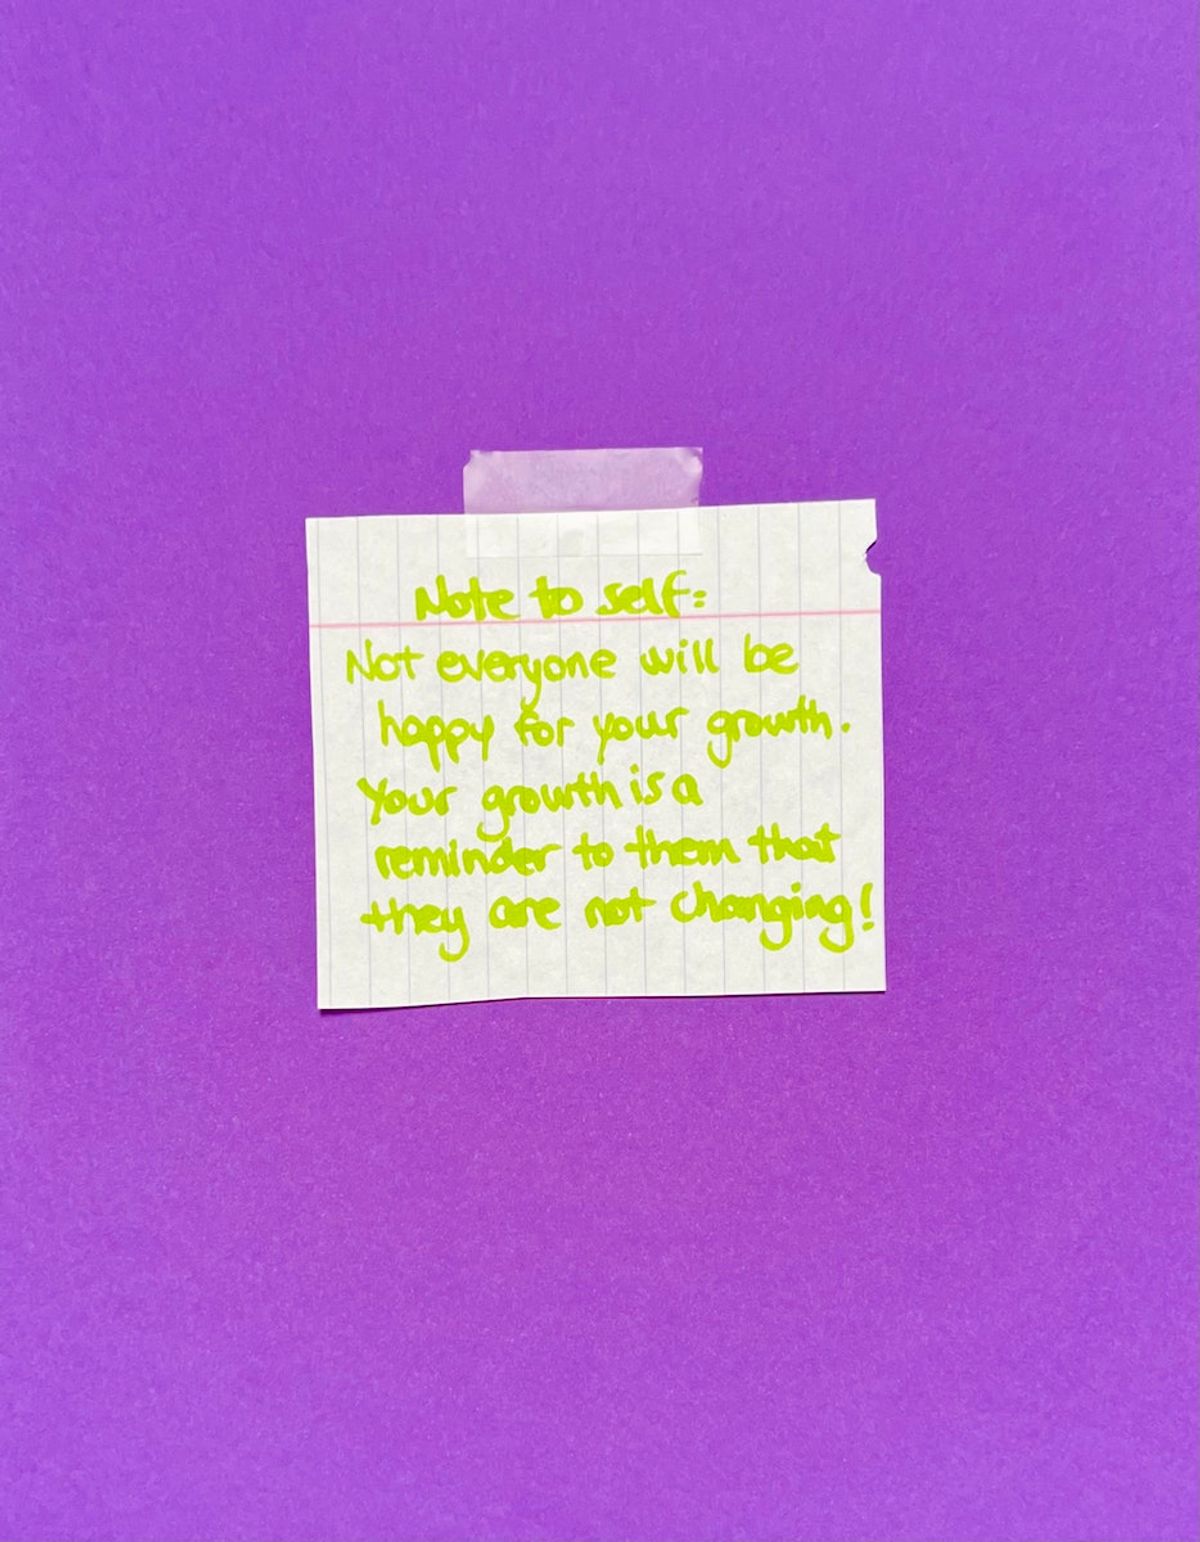 Note to self:
Not everyone will be
happy for your growth.
Your growth is a
reminder to them that
they are not changing!